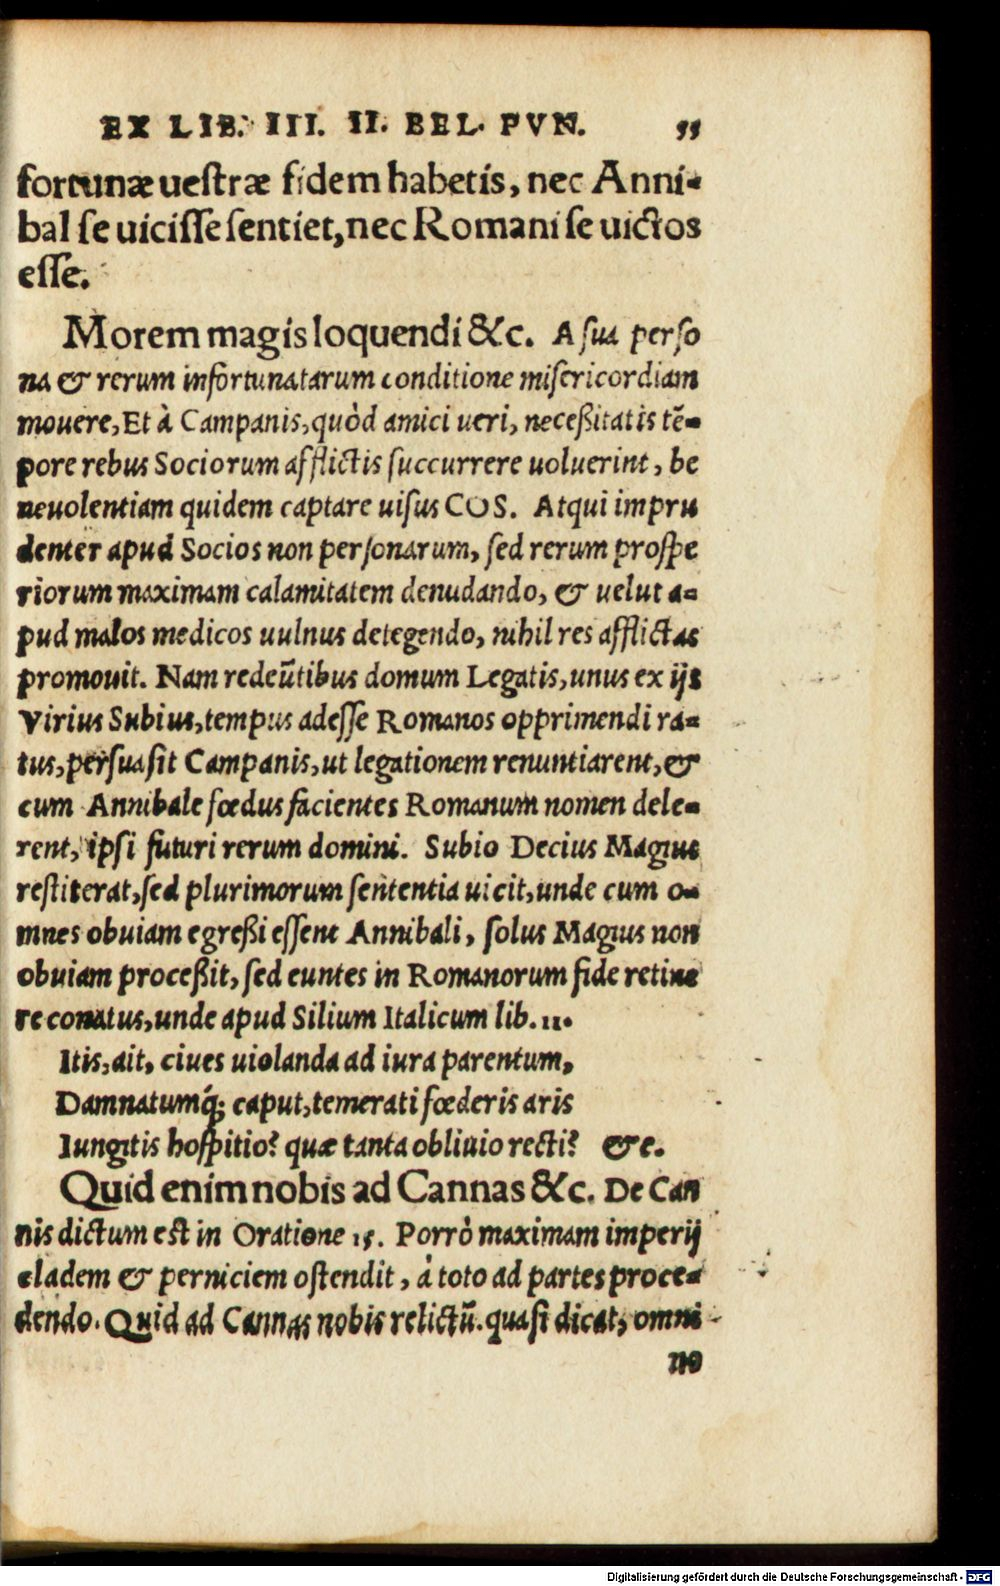 EX LIB. III. II. BEL. PVN. 55
fortunæ ueſtræ fidem habetis, nec Anni-
bal ſe uiciſſe ſentiet, nec Romani ſe uictos
eſſe.
Morem magis loquendi &c. A ſua perſo
na & rerum infortunatarum conditione miſericordiam
mouere, Et à Campanis, quòd amici ueri, neceßitatis tē-
pore rebus Sociorum afflictis ſuccurrere uoluerint, be
neuolentiam quidem captare uiſus COS. Atqui impru
denter apud Socios non perſonarum, ſed rerum proſpe
riorum maximam calamitatem denudando, & uelut a-
pud malos medicos uulnus detegendo, nihil res afflictas
promouit. Nam redeũtibus domum Legatis, unus ex ijs
Virius Subius, tempus adeſſe Romanos opprimendi ra-
tus, perſuaſit Campanis, ut legationem renuntiarent, &
cum Annibale fœdus facientes Romanum nomen dele-
rent, ipſi futuri rerum domini. Subio Decius Magius
reſtiterat, ſed plurimorum ſententia uicit, unde cum o-
mnes obuiam egreßi eſſent Annibali, ſolus Magius non
obuiam proceßit, ſed euntes in Romanorum fide retine
re conatus, unde apud Silium Italicum lib. 11.
Itis, ait, ciues uiolanda ad iura parentum,
Damnatumq́; caput, temerati fœderis aris
Iungitis hoſpitio? quæ tanta obliuio recti? &c.
Quid enim nobis ad Cannas &c. De Can
nis dictum est in Oratione 15. Porrò maximam imperij
cladem & perniciem oſtendit, à toto ad partes proce-
dendo. Quid ad Cannas nobis relictũ. quaſi dicat, omni
no
Digitalisierung gefördert durch die Deutsche Forschungsgemeinschaft - DFG